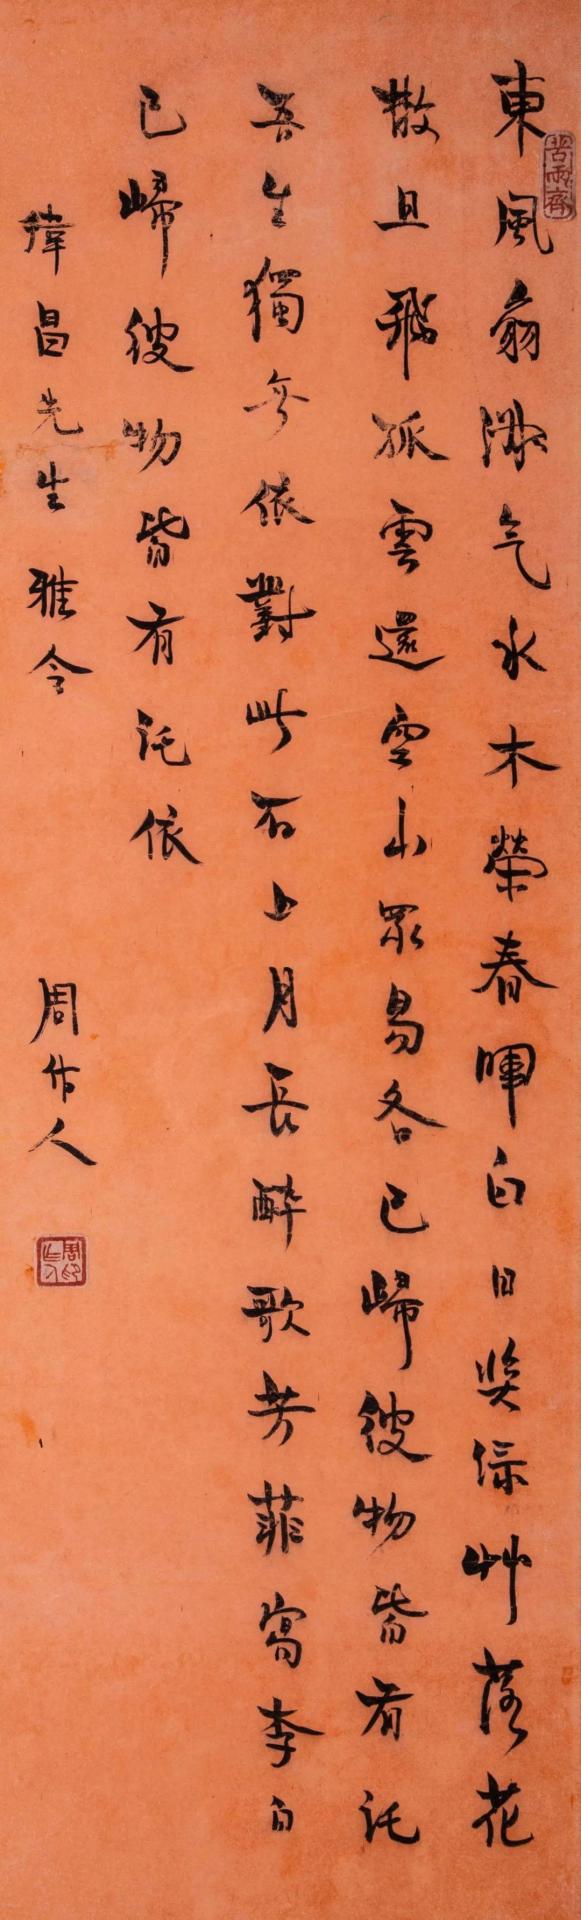 東風扇淑气水木榮春暉白日照綠艸落花
散且飛孤雲還空山眾鳥各已歸彼物皆有託
吾生獨無依對此石上月長醉歌芳菲寫李白
已歸彼物皆有託依
偉昌先生雅令
周作人
苦雨齋
周作人印